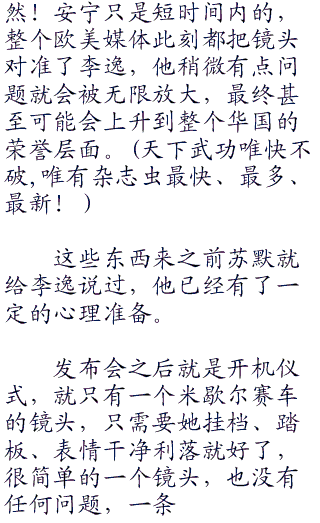 然！安宁只是短时间内的，
整个欧美媒体此刻都把镜头
对准了李逸，他稍微有点问
题就会被无限放大，最终甚
至可能会上升到整个华国的
荣誉层面。(天下武功唯快不
破,唯有杂志虫最快、最多、
最新！ )
这些东西来之前苏默就
给李逸说过，他已经有了一
定的心理准备。
发布会之后就是开机仪
式，就只有一个米歇尔赛车
的镜头，只需要她挂档、踏
板、表情干净利落就好了，
很简单的一个镜头，也没有
任何问题，一条